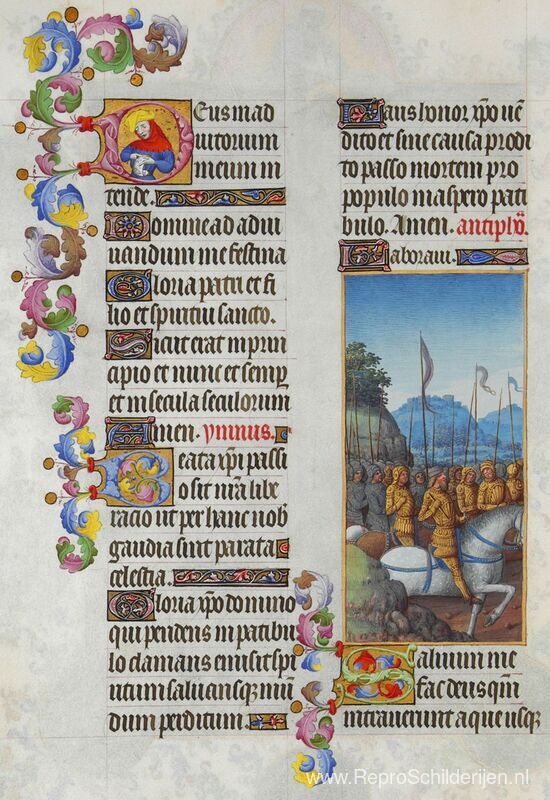 Eus in ad
iutorium
meum in
tende.
Domine ad adiu
uandum me festina
Gloria patri et fi
lio et spiritui sancto.
Sicut erat in prin
cipio et nunc et semp
et in secula seculorum
Amen. ymnus.
Beata xpi passi
o sit nra libe
racio ut per hanc nob
gaudia sint parata
celestia.
Gloria xpo domino
qui pendens in patibu
lo clamans emisit spi
ritum saluans mun
dum perditum.
Laus honor xpo uen
dito et sine causa prodi
to passo mortem pro
populo in aspero pati
bulo. Amen. antiph.
Laboraui.
Saluum me
fac deus qm
intrauerunt aque usq
www.ReproSchilderijen.nl